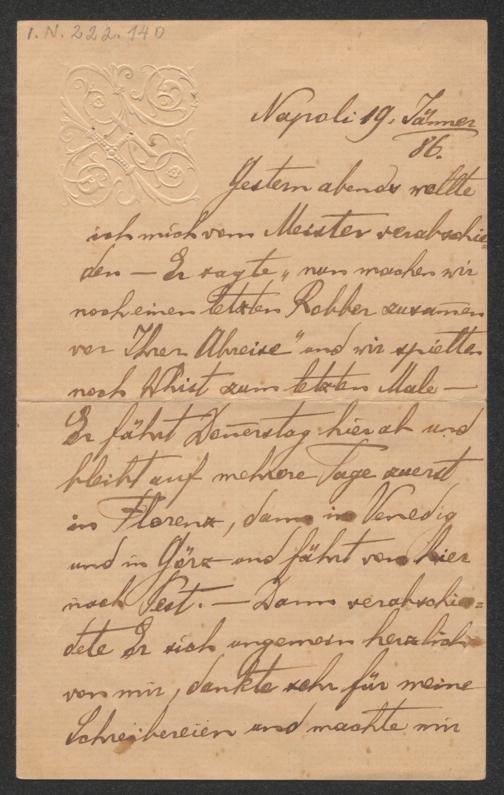 I.N. 222.140
Napoli 19. Jänner
86.
Gestern abends wollte
ich mich vom Meister verabschie=
den — Er sagte „nun machen wir
noch einen letzten Robber zusam̄en
vor Ihrer Abreise" und wir spielten
noch Whist zum letzten Male —
Er fährt Don̄erstag hier ab und
bleibt auf mehrere Tage zuerst
in Florenz, dann in Venedig
und in Görz und fährt von hier
nach Pest. — Dann verabschie=
dete Er sich ungemein herzlich
von mir, dankte sehr für meine
Schreibereien und machte mir